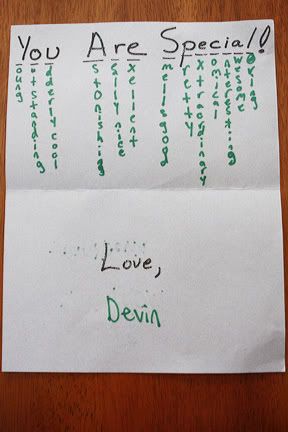 You Are Special!
oung
utstanding
dderly cool
stonishing
eally nice
xellent
mells good
retty
xtraodinary
omical
nteresting
wesome
oving
Love,
Devin